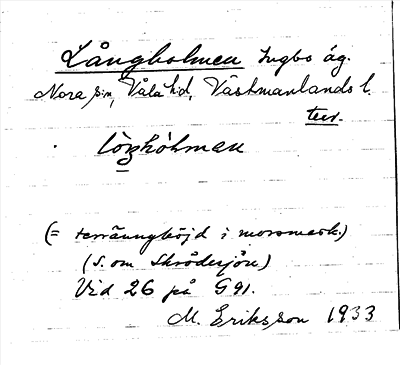 Långholmen Ingbo äg.
Nora sn, Våla hd, Västmanlands l.
terr.
lòŋhòlman
(= terränghöjd i morsmark.)
(S. om Skrädersjön)
Vid 26 på G 91.
M. Eriksson 1933